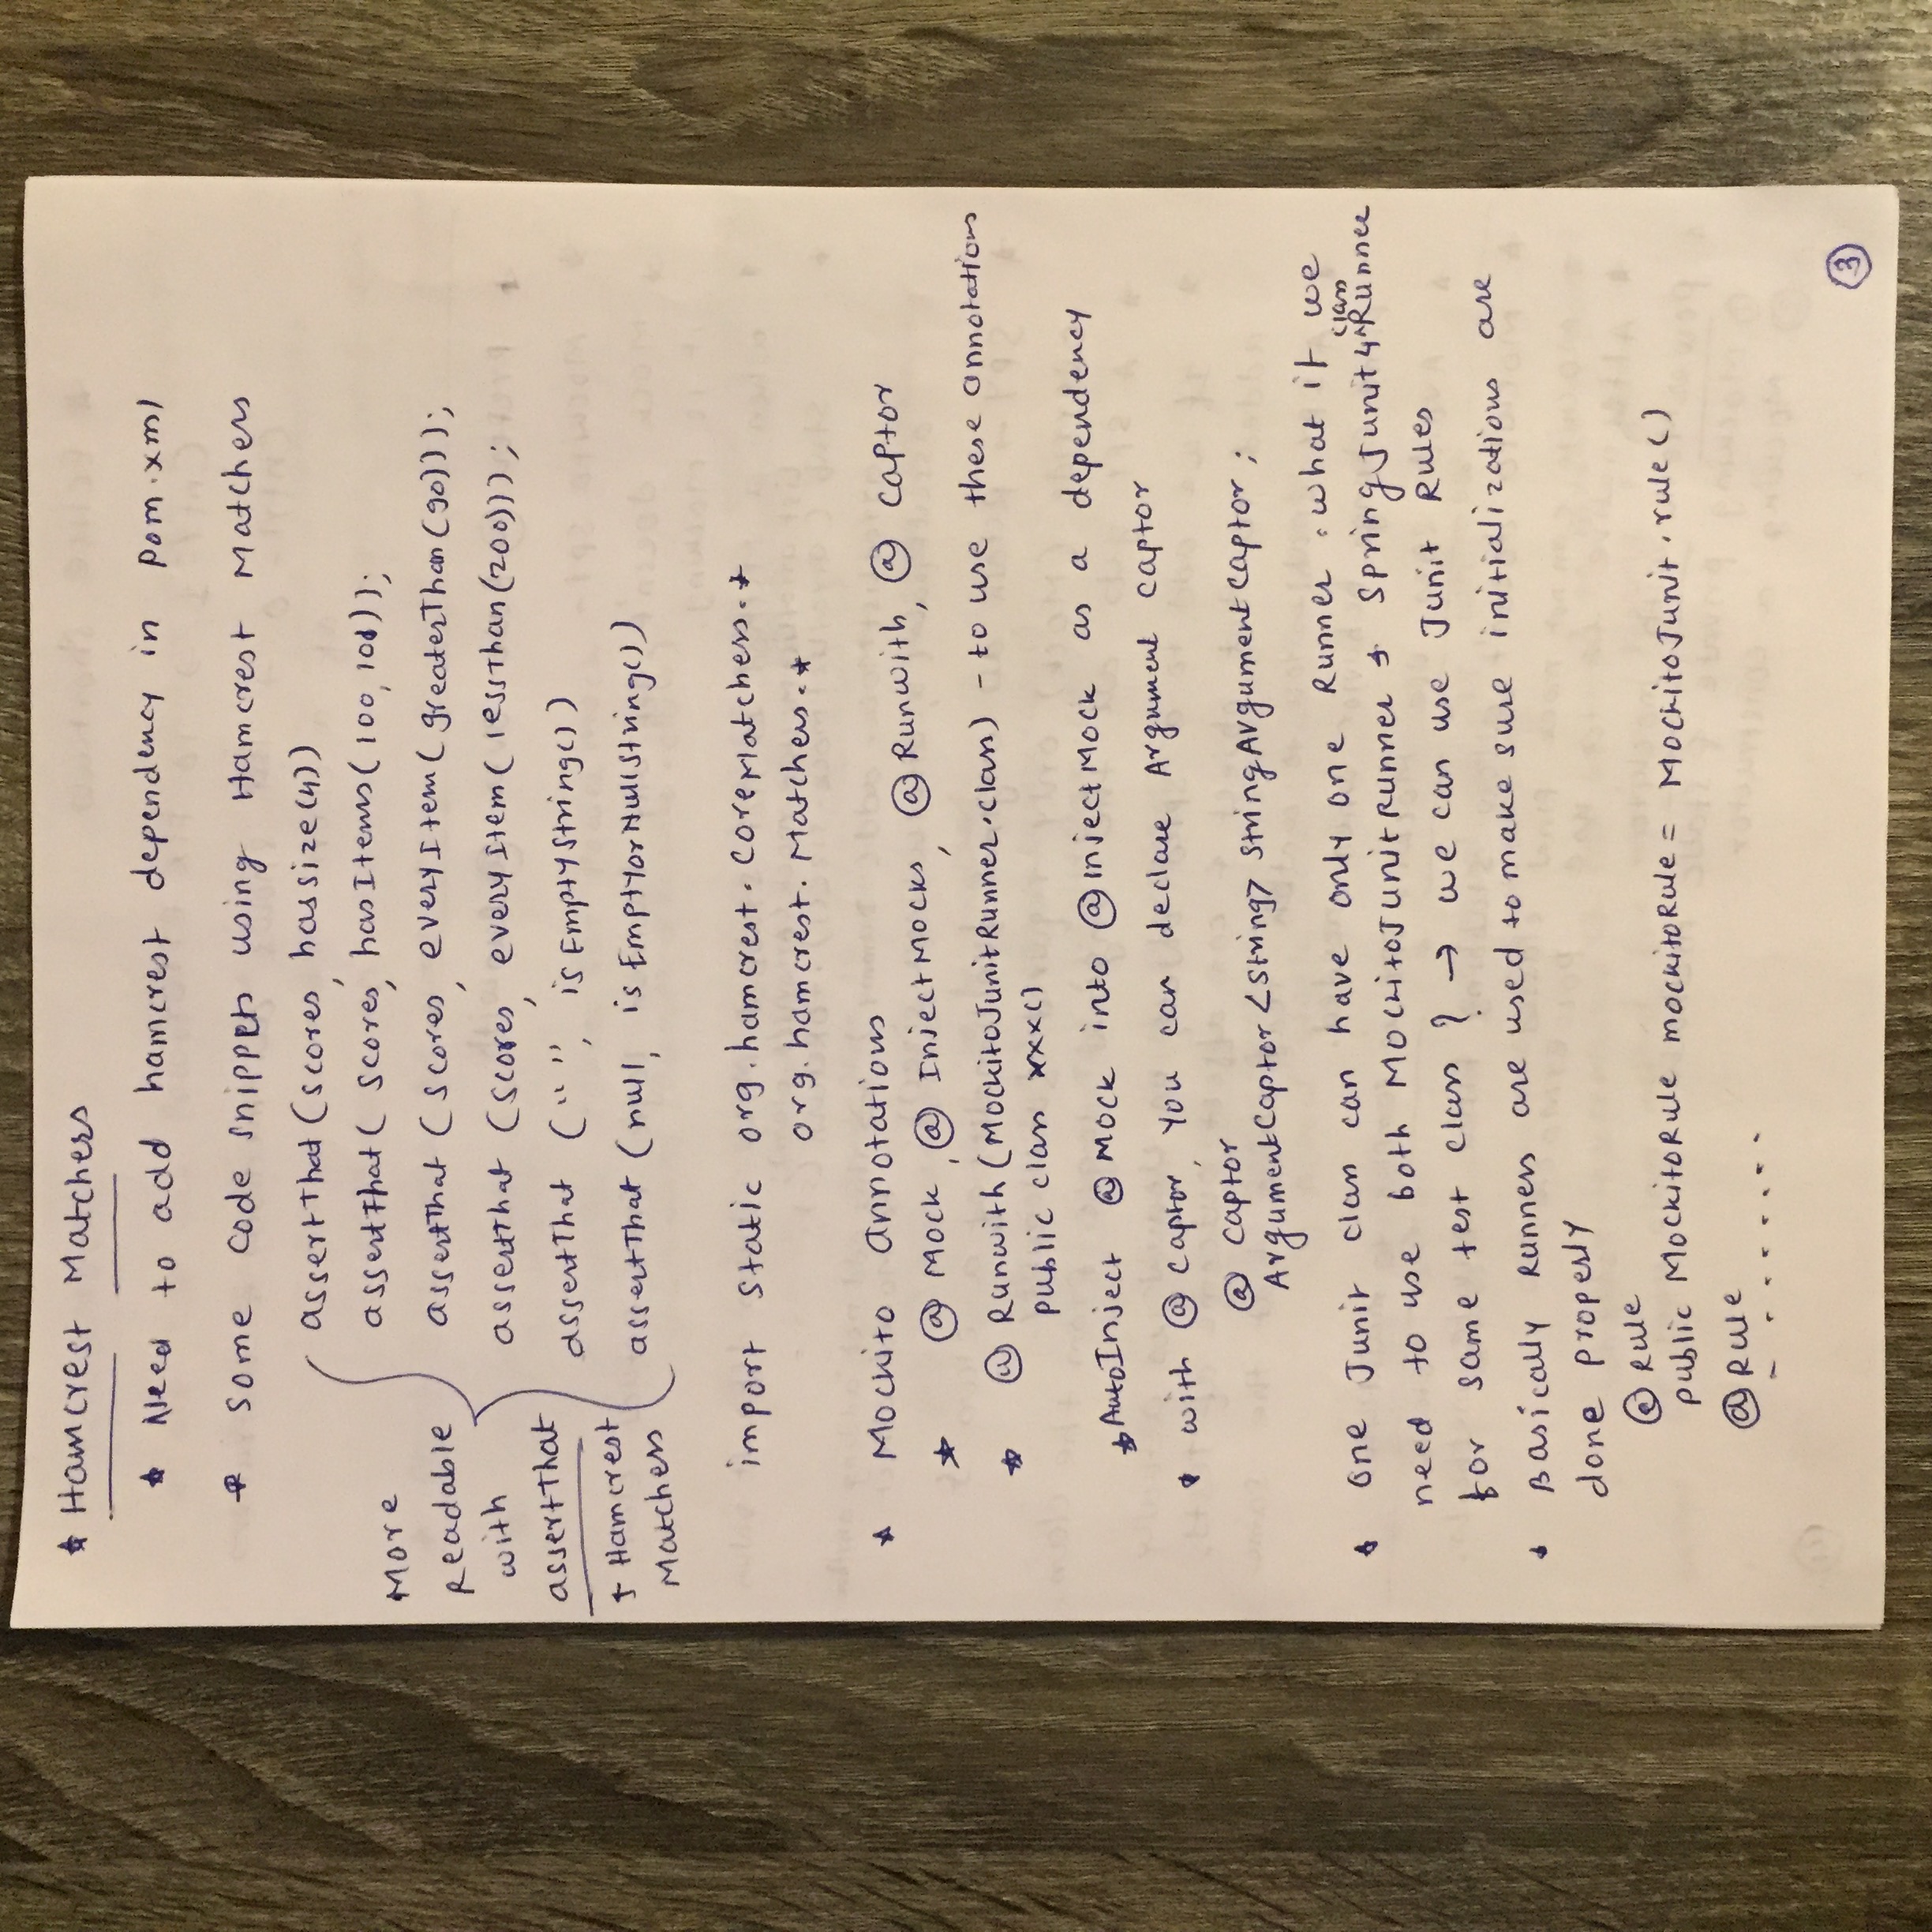 * Hamcrest Matchers
* Need to add hamcrest dependency in pom.xml
* Some code snippets using Hamcrest Matchers
More
Readable
with
assertThat
+ Hamcrest
Matchers
assertThat (scores, hassize(4))
assertThat ( scores, hasItems( 100, 101));
assertThat ( scores, everyItem ( greaterThan (90)));
assertThat (scores, everyItem ( lessThan (200)));
assertThat (" ", isEmptyString())
assertThat (null, isEmptyorNullString())
import static org.hamcrest.CoreMatchers.*
org.hamcrest.Matchers.*
* Mockito annotations
* @ Mock, @ InjectMocks, @ Runwith, @ Captor
* @ Runwith (MockitoJunitRunner.class) - to use these annotations
public class xxx()
* AutoInject @ Mock into @ InjectMock as a dependency
* with @ Captor, you can declare Argument captor
@ Captor
ArgumentCaptor <String> stringArgumentCaptor ;
* One Junit class can have only one Runner. what if we
need to use both MockitoJunitRunner + SpringJunit4^class Runner
for same test class ? → we can use Junit Rules
* Basically Runners are used to make sure initializations are
done properly
@ Rule
public MockitoRule mockitoRule = MockitoJunit.rule()
@ Rule
- . . . . . . .
3